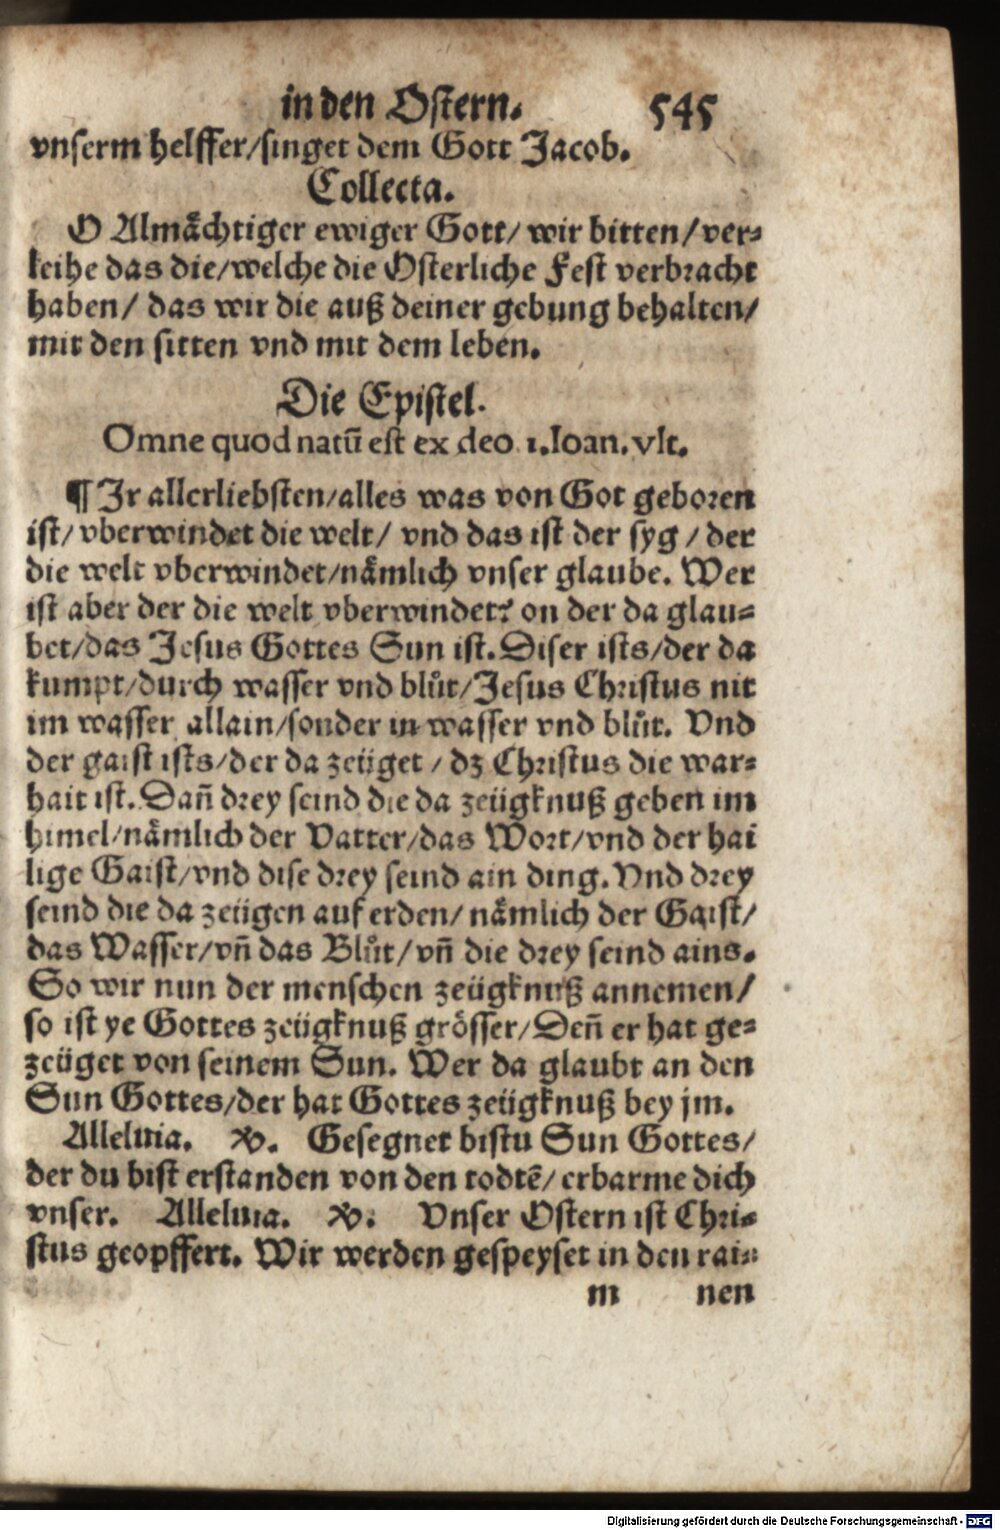 in den Ostern. 545
vnserm helffer/singet dem Gott Jacob.
Collecta.
O Almaͤchtiger ewiger Gott/ wir bitten/ver⸗
leihe das die/welche die Osterliche Fest verbracht
haben/ das wir die auß deiner gebung behalten/
mit den sitten vnd mit dem leben.
Die Epistel.
Omne quod natū est ex deo 1.Ioan. vlt.
¶ Jr allerliebsten/alles was von Got geboren
ist/ vberwindet die welt/ vnd das ist der syg / der
die welt vberwindet/naͤmlich vnser glaube. Wer
ist aber der die welt vberwindet? on der da glau⸗
bet/das Jesus Gottes Sun ist. Diser ists/der da
kumpt/durch wasser vnd bluͦt/Jesus Christus nit
im wasser allain/sonder in wasser vnd bluͦt. Vnd
der gaist ists/der da zeüget / dz Christus die war⸗
hait ist. Dañ drey seind die da zeügknuß geben im
himel/naͤmlich der Vatter/das Wort/vnd der hai
lige Gaist/vnd dise drey seind ain ding. Vnd drey
seind die da zeügen auf erden/ naͤmlich der Gaist/
das Wasser/vñ das Bluͦt/vñ die drey seind ains.
So wir nun der menschen zeügknuß annemen/
so ist ye Gottes zeügknuß groͤsser/Deñ er hat ge⸗
zeüget von seinem Sun. Wer da glaubt an den
Sun Gottes/der hat Gottes zeügknuß bey jm.
Alleluia. ℣. Gesegnet bistu Sun Gottes/
der du bist erstanden von den todtē/ erbarme dich
vnser. Alleluia. ℣. Vnser Ostern ist Chri⸗
stus geopffert. Wir werden gespeyset in den rai⸗
m nen
Digitalisierung gefördert durch die Deutsche Forschungsgemeinschaft - DFG